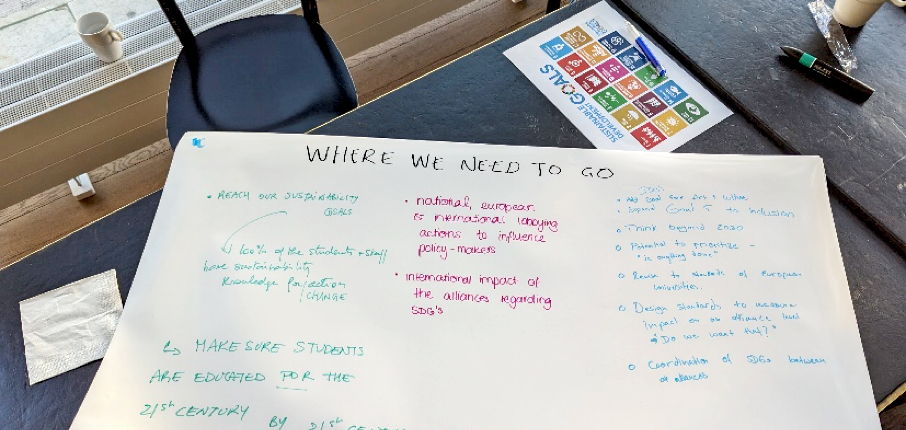 WHERE WE NEED TO GO
• REACH OUR SUSTAINABILITY
GOALS
↳ 100% of the students + staff
have sustainability
knowledge for action
/CHANGE
↳ MAKE SURE STUDENTS
ARE EDUCATED FOR THE
21st CENTURY
BY 21st
• national, european
& international lobbying
actions to influence
policy-makers
• International impact of
the alliances regarding
SDG's
Goal 5 to inclusion
• Think beyond 2030
• Potential to prioritise -
"is anything done"
of European
universities
• Design standards to measure
impact on an alliance level
Do we want that?
• Coordination of SDGs between
alliances
SUSTAINABLE
DEVELOPMENT
GOALS